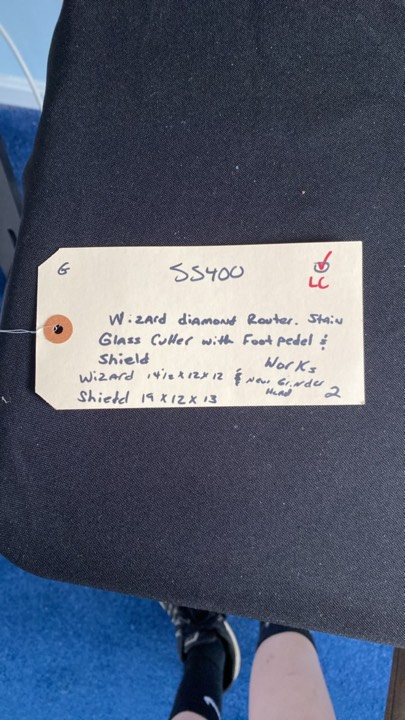 G SS400
LC
Wizard diamond Router. Stain
Glass Cutter with Foot pedel &
Shield Works
Wizard 14½ x 12 x 12 & New Grinder
Head 2
Shield 19 x 12 x 13